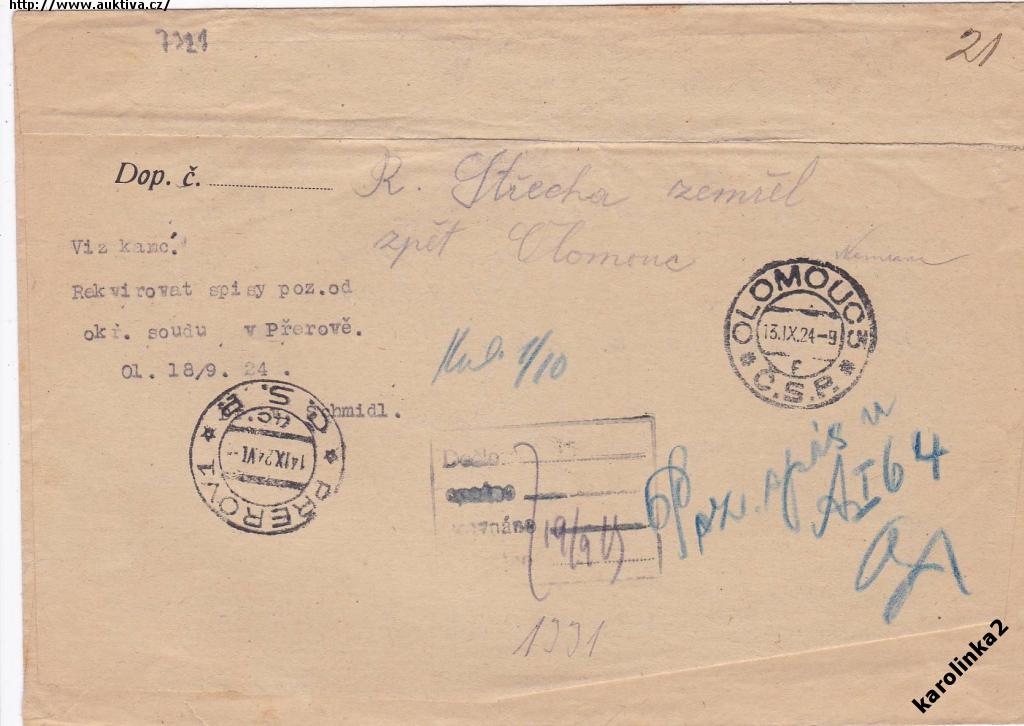 http://www.auktiva.cz/
7321
21
Dop. č.
R. Střecha zemřel
zpět Olomouc
Viz kanc.
Rekvirovat spisy poz.od
okř. soudu v Přerově.
Ol. 18/9. 24 .
Schmidl.
OLOMOUC 3
13.IX.24-9
c
Č.S.P.
1/10
PŘEROV 1
14IX24VI
4c
Č.S.P.
Došlo
19/9 24
spis u
A I 64
1331
karolinka2